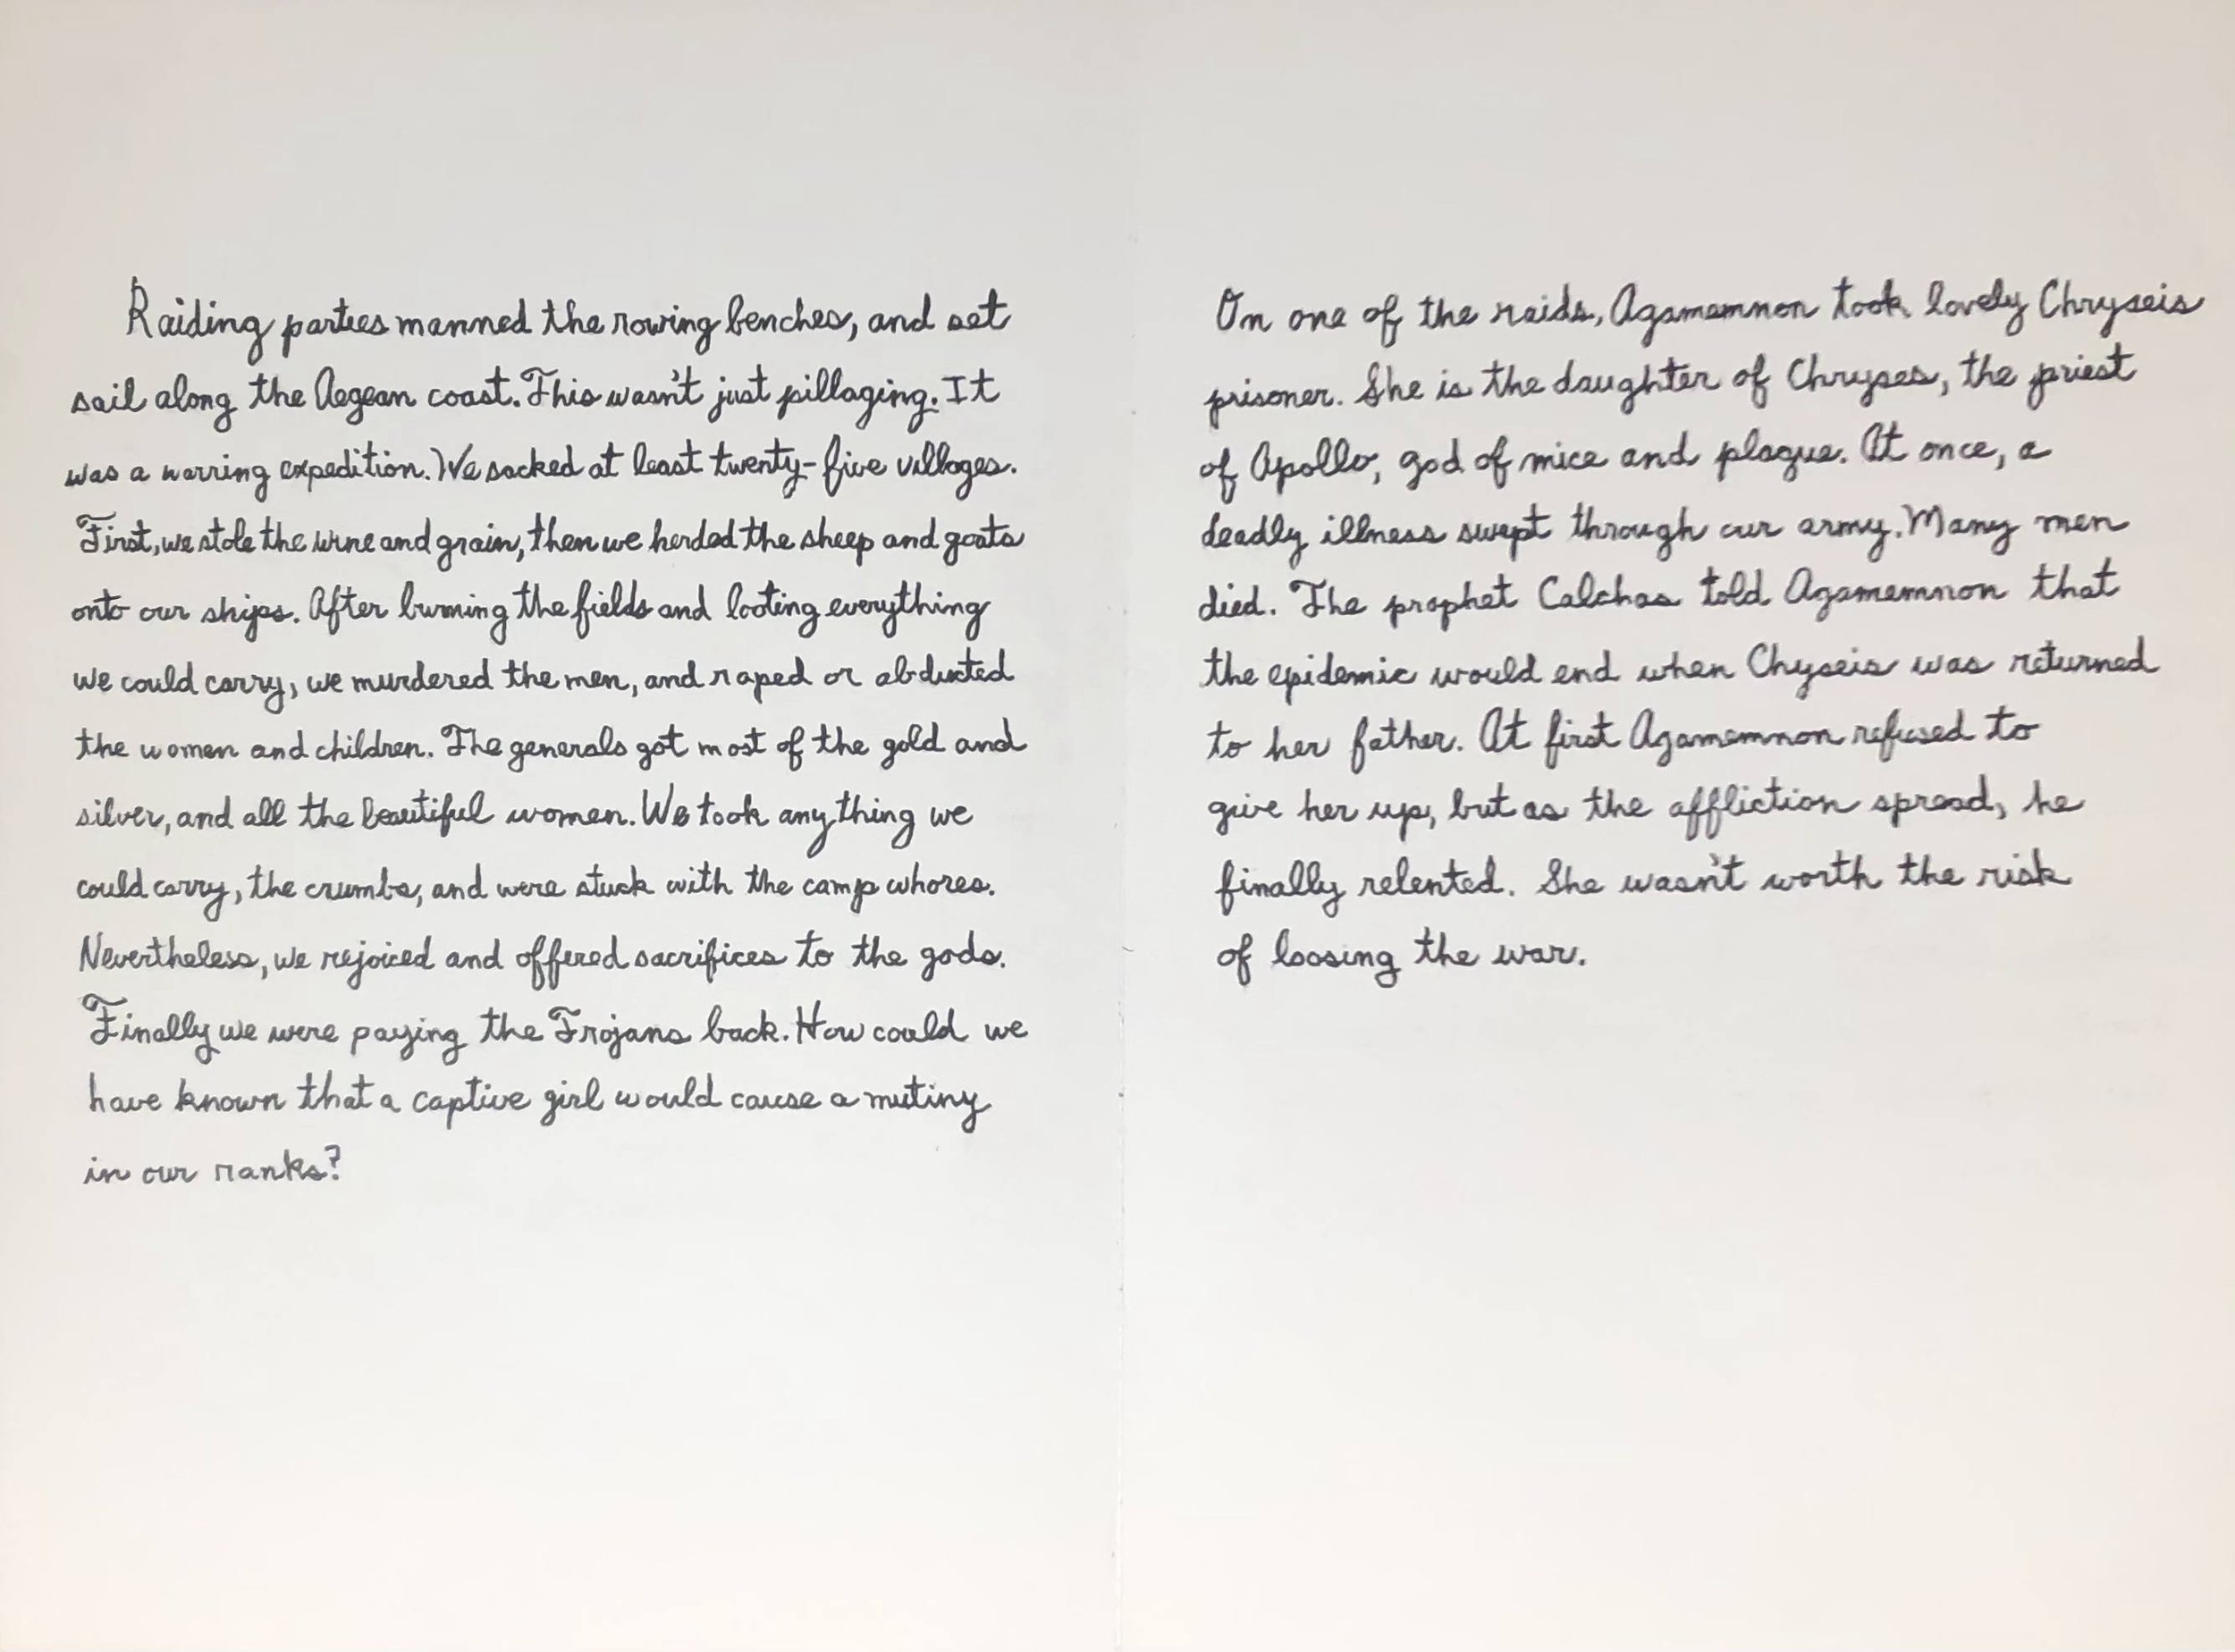 Raiding parties manned the rowing benches, and set
sail along the Aegean coast. This wasn't just pillaging. It
was a warring expedition. We sacked at least twenty-five villages.
First, we stole the wine and grain, then we herded the sheep and goats
onto our ships. After burning the fields and looting everything
we could carry, we murdered the men, and raped or abducted
the women and children. The generals got most of the gold and
silver, and all the beautiful women. We took anything we
could carry, the crumbs, and were stuck with the camp whores.
Nevertheless, we rejoiced and offered sacrifices to the gods.
Finally we were paying the Trojans back. How could we
have known that a captive girl would cause a mutiny
in our ranks?
On one of the raids, Agamemnon took lovely Chryseis
prisoner. She is the daughter of Chryses, the priest
of Apollo, god of mice and plague. At once, a
deadly illness swept through our army. Many men
died. The prophet Calchas told Agamemnon that
the epidemic would end when Chyseis was returned
to her father. At first Agamemnon refused to
give her up, but as the affliction spread, he
finally relented. She wasn't worth the risk
of loosing the war.